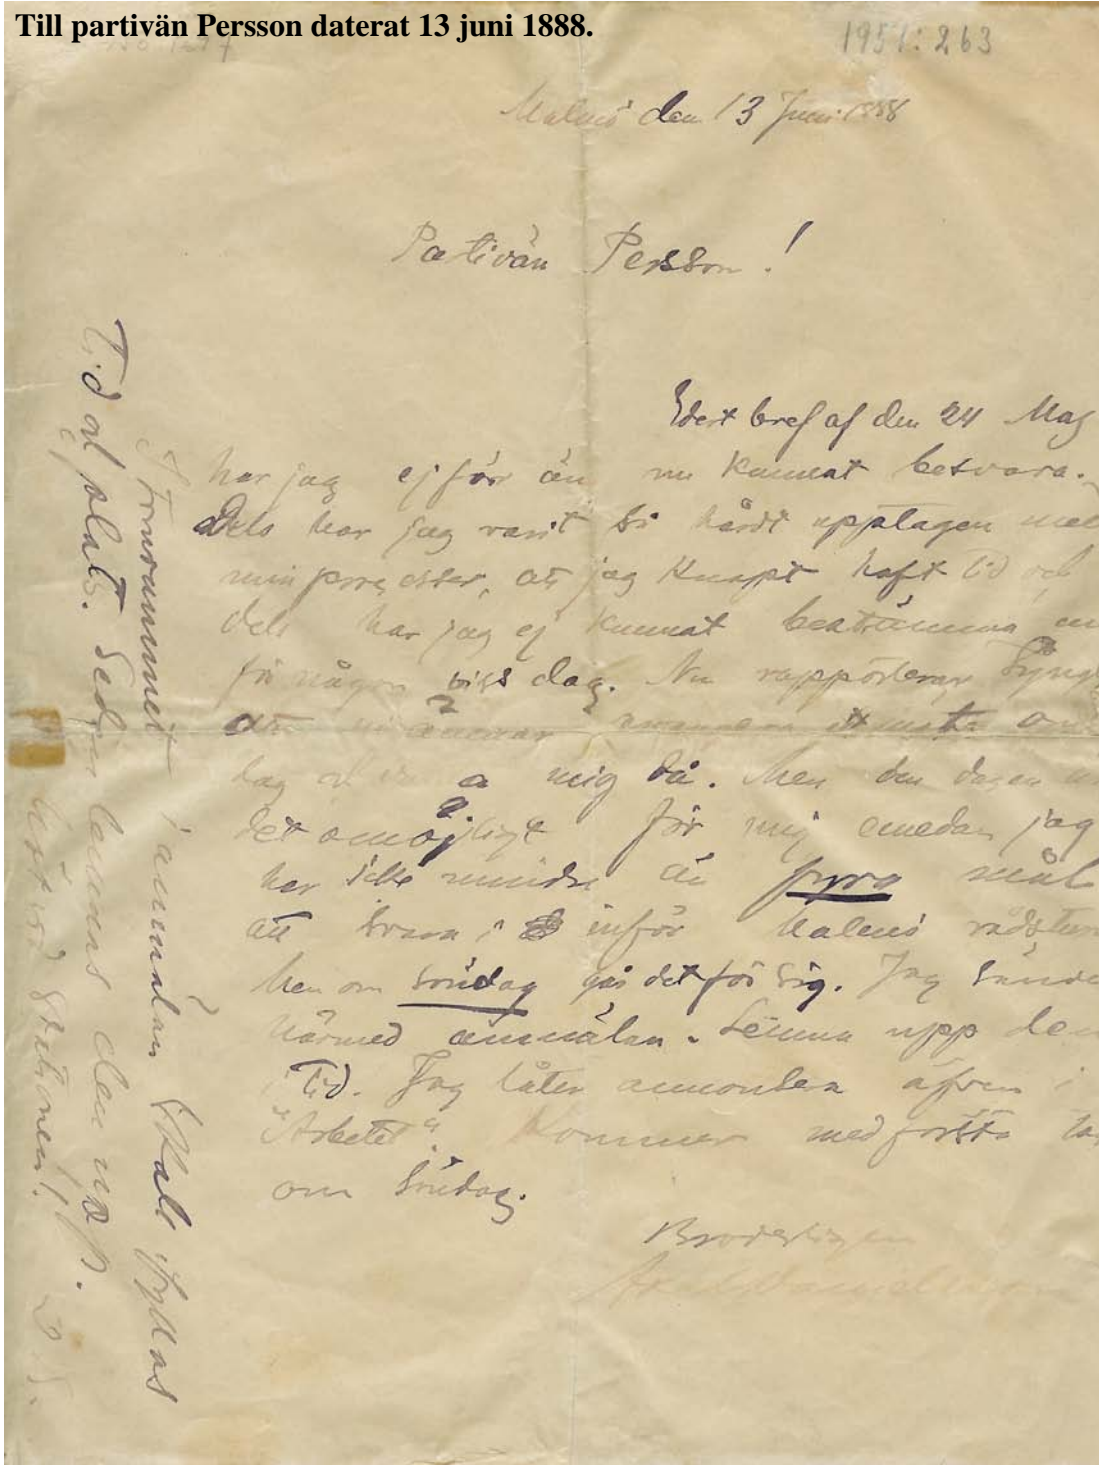 Till partivän Persson daterat 13 juni 1888.
1951:263
Malmö den 13 Juni 1888
Partivän Persson!
Edert bref af den 24 Maj
har jag ej för än nu kunnat besvara.
Dels har jag varit så hårdt upptagen med
min processer, att jag knapt haft tid och
dels har jag ej kunnat bestämma en
på någon viss dag. Nu rapporterar
att ni
dag mig då. Men den dagen
det omöjligt för mig emedan jag
har icke mindre än fyra mål
att svara i inför Malmö rådstu
Men om söndag går det för sig. Jag sände
härmed anmälan. Lemna upp den
i Tid. Jag låter annonsera äfven i
"Arbetet". Kommer med första
om Söndag.
Broderligen
Axel Danielsson
Tomrummet i anmälan skall ifyllas
Tid och plats. Sedan lemnas den upp.
vid stationen!
D. S.